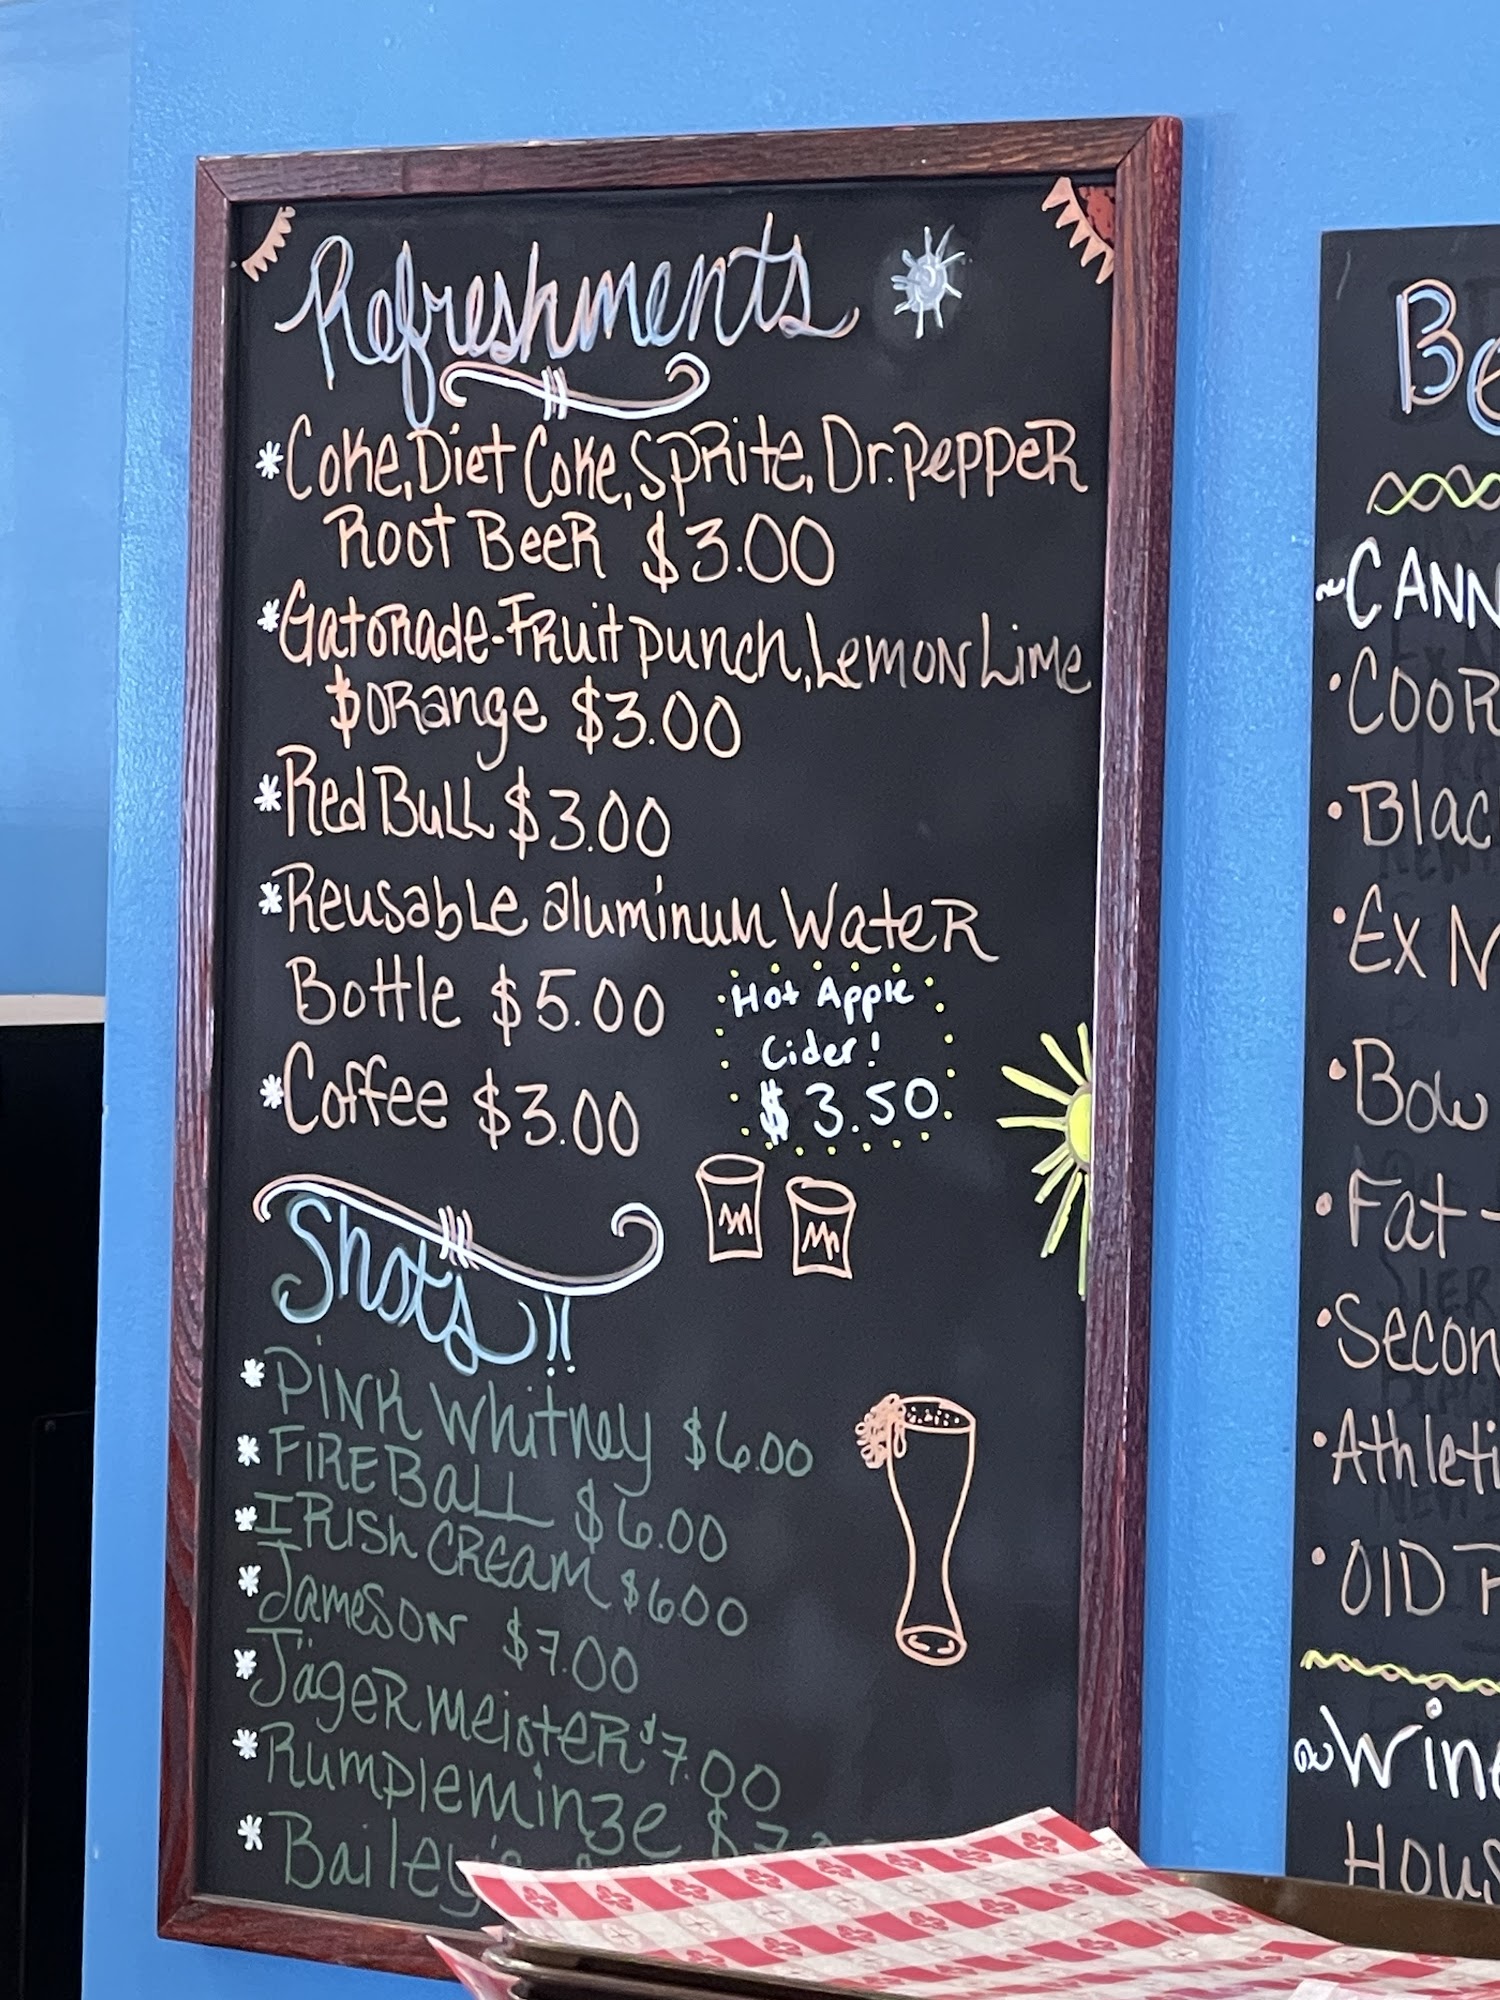 Refreshments
*Coke, Diet Coke, Sprite, Dr. Pepper
Root Beer $3.00
*Gatorade-Fruit Punch, Lemon Lime
$ Orange $3.00
*Red Bull $3.00
*Reusable aluminum Water
Bottle $5.00
*Coffee $3.00
Hot Apple
Cider!
$3.50
Shots!!
*Pink Whitney $6.00
*Fireball $6.00
*Irish Cream $6.00
*Jameson $7.00
*Jägermeister $7.00
*Rumpleminze $7
*Bailey's
Be
~CANN
•COOR
•Blac
•Ex N
•Bow
•Fat
•Secon
•Athleti
•Old
~Wine
Hous